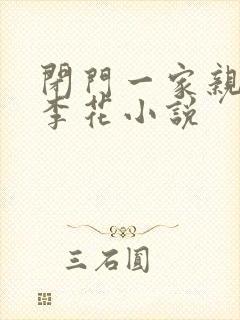 閉門一家親
李花小說
三石圓